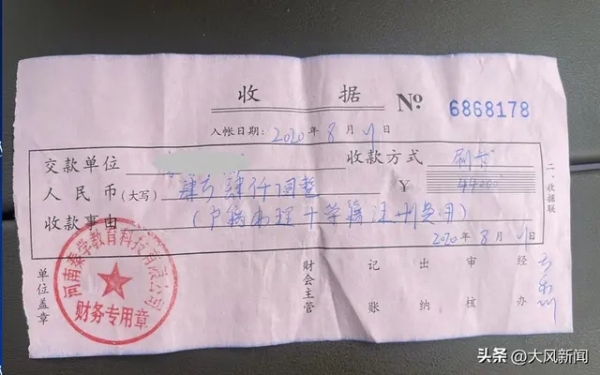 收 据 № 6868178
入帐日期: 2020 年 8 月 日
交款单位 收款方式 刷卡
人民币(大写) 肆万肆仟圆整 ¥ 44000
收款事由 (户籍办理+学籍注册费用)
2020 年 8 月 日
二、收据联
单位盖章
河南秦学教育科技有限公司
财务专用章
财会主管
记账
出纳
审核
经办
头条 @大风新闻